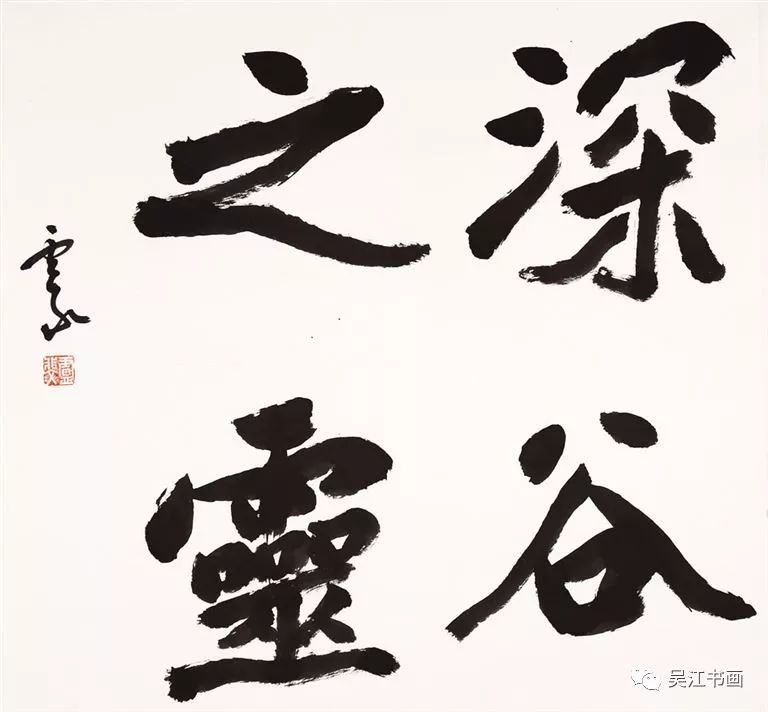 深谷
之靈
吴江书画